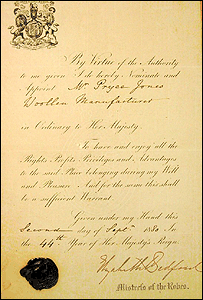 By Virtue of the Authority
to me given I do hereby Nominate and
Appoint Mr Pryce Jones
Woollen Manufacturer
in Ordinary to Her Majesty.
To have and enjoy all the
Rights Profits Privileges and Advantages
to the said Place belonging during my Will
and Pleasure And for the same this shall
be a sufficient Warrant
Given under my Hand this
Second day of Sept 1880
In the 44th Year of Her Majesty's Reign.
Elizabeth Bedford
Mistress of the Robes.